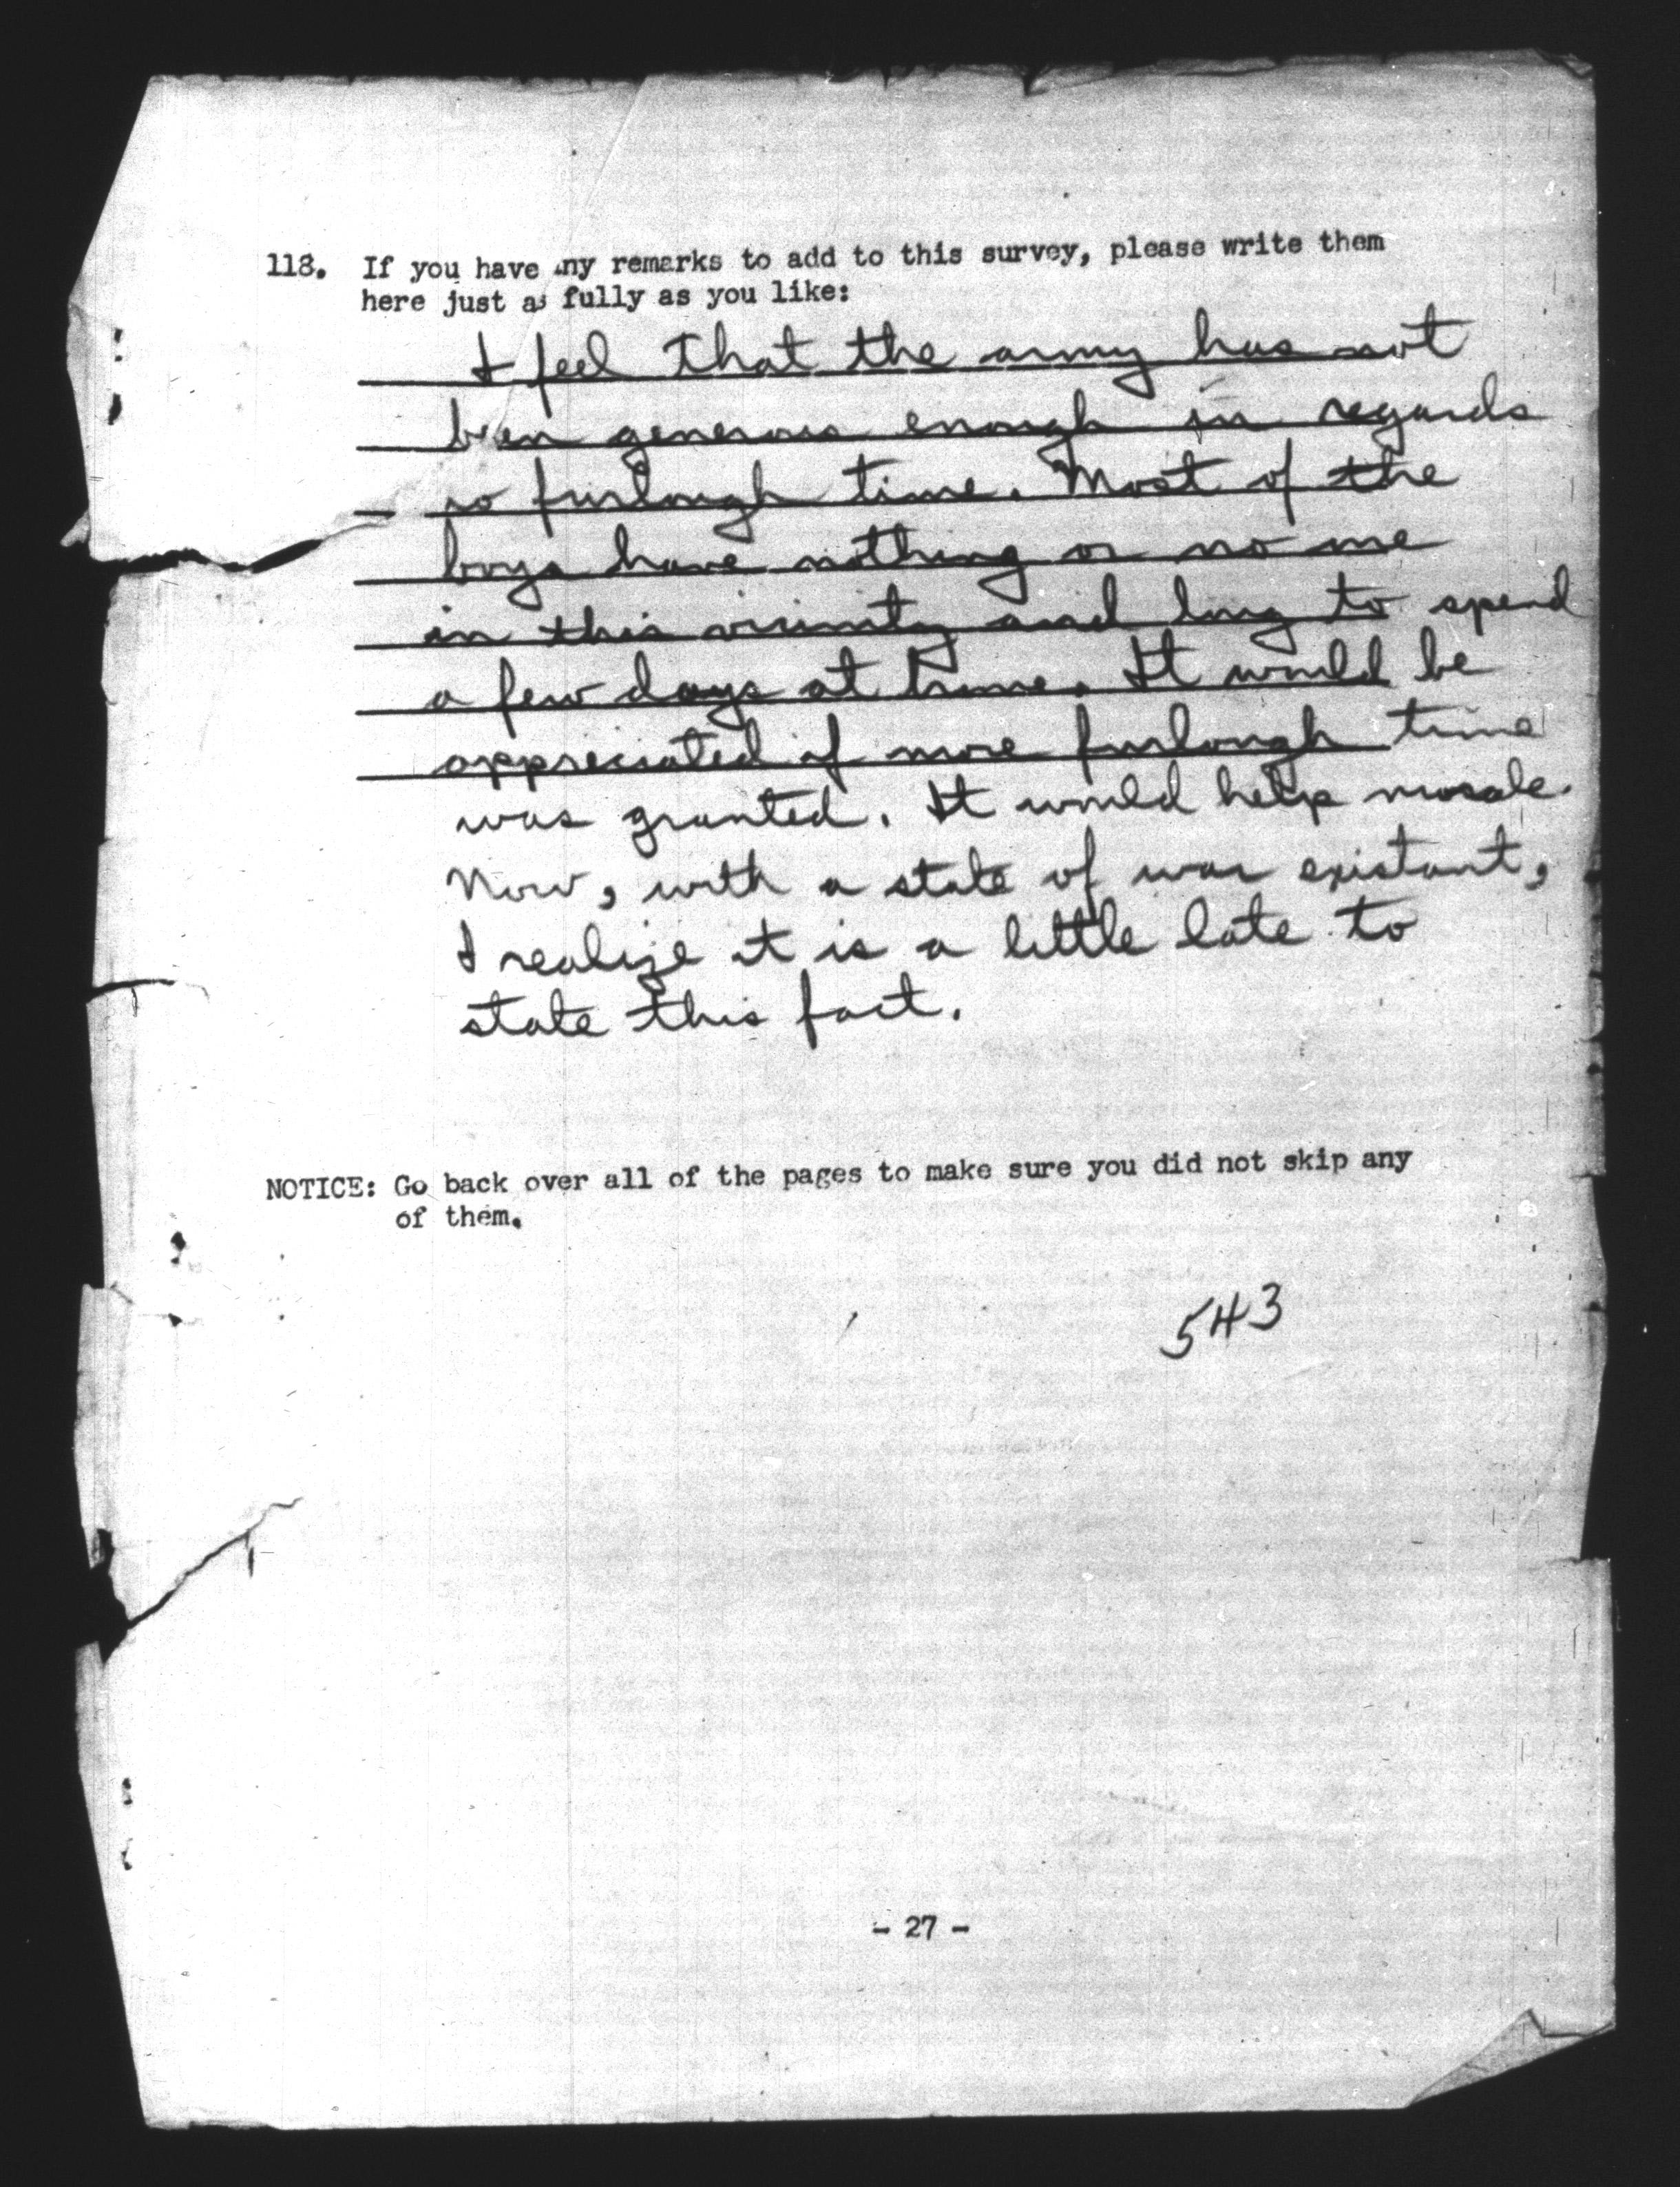 118. If you have any remarks to add to this survey, please write them
here just as fully as you like:
I feel that the army has not
been generous enough in regards
to furlough time. Most of the
boys have nothing or no one
in this vicinity and long to spend
a few days at home. It would be
appreciated if more furlough time
was granted. It would help morale.
Now, with a state of war existant,
I realize it is a little late to
state this fact.
NOTICE: Go back over all of the pages to make sure you did not skip any
of them.
543
- 27 -